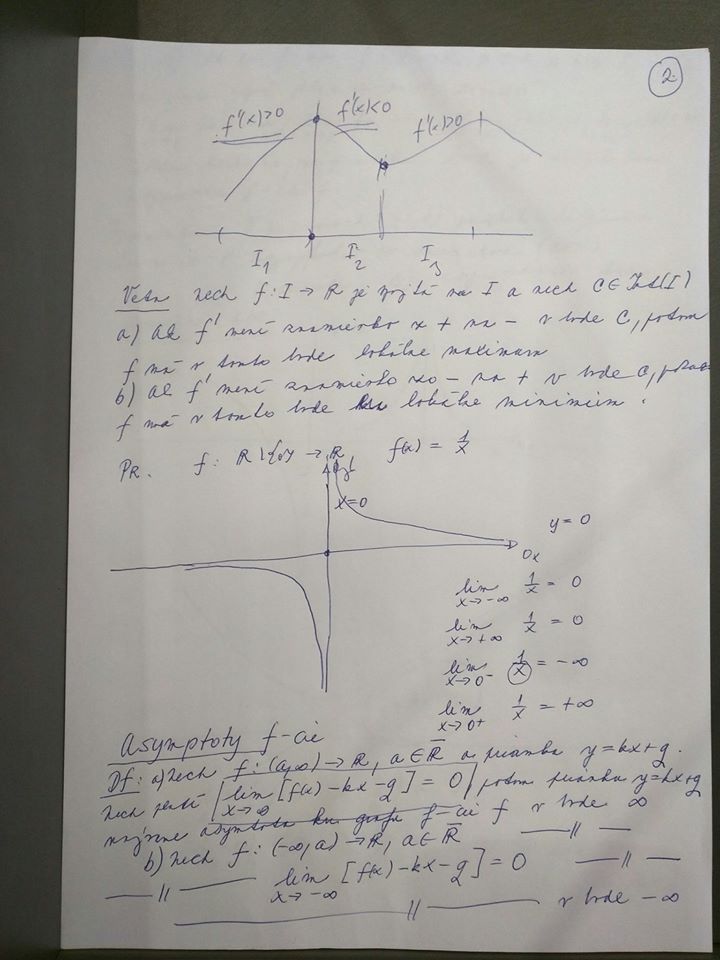 2.
f'(x)>0 f'(x)<0 f'(x)>0
I₁ I₂ I₃
Veta Nech f: I → R je spojitá na I a nech C ∈ Int(I)
a) Ak f' mení znamienko z + na − v bode C, potom
f má v tomto bode lokálne maximum
b) Ak f' mení znamienko zo − na + v bode C, potom
f má v tomto bode lokálne minimum.
PR. f: R\{0} → R, f(x) = 1/x
x=0
y=0
0x
lim x→−∞ 1/x = 0
lim x→+∞ 1/x = 0
lim x→0⁻ 1/x = −∞
lim x→0⁺ 1/x = +∞
Asymptoty f-cie
Df: a) Nech f: (a,∞) → R, a∈R̅ a priamka y=kx+q.
Nech platí lim x→∞ [f(x)−kx−q] = 0 potom priamku y=kx+q
nazývame asymptota ku grafu f-cie f v bode ∞
b) Nech f: (−∞,a) → R, a∈R̅ —//—
—//— lim x→−∞ [f(x)−kx−q] = 0 —//—
—//— v bode −∞